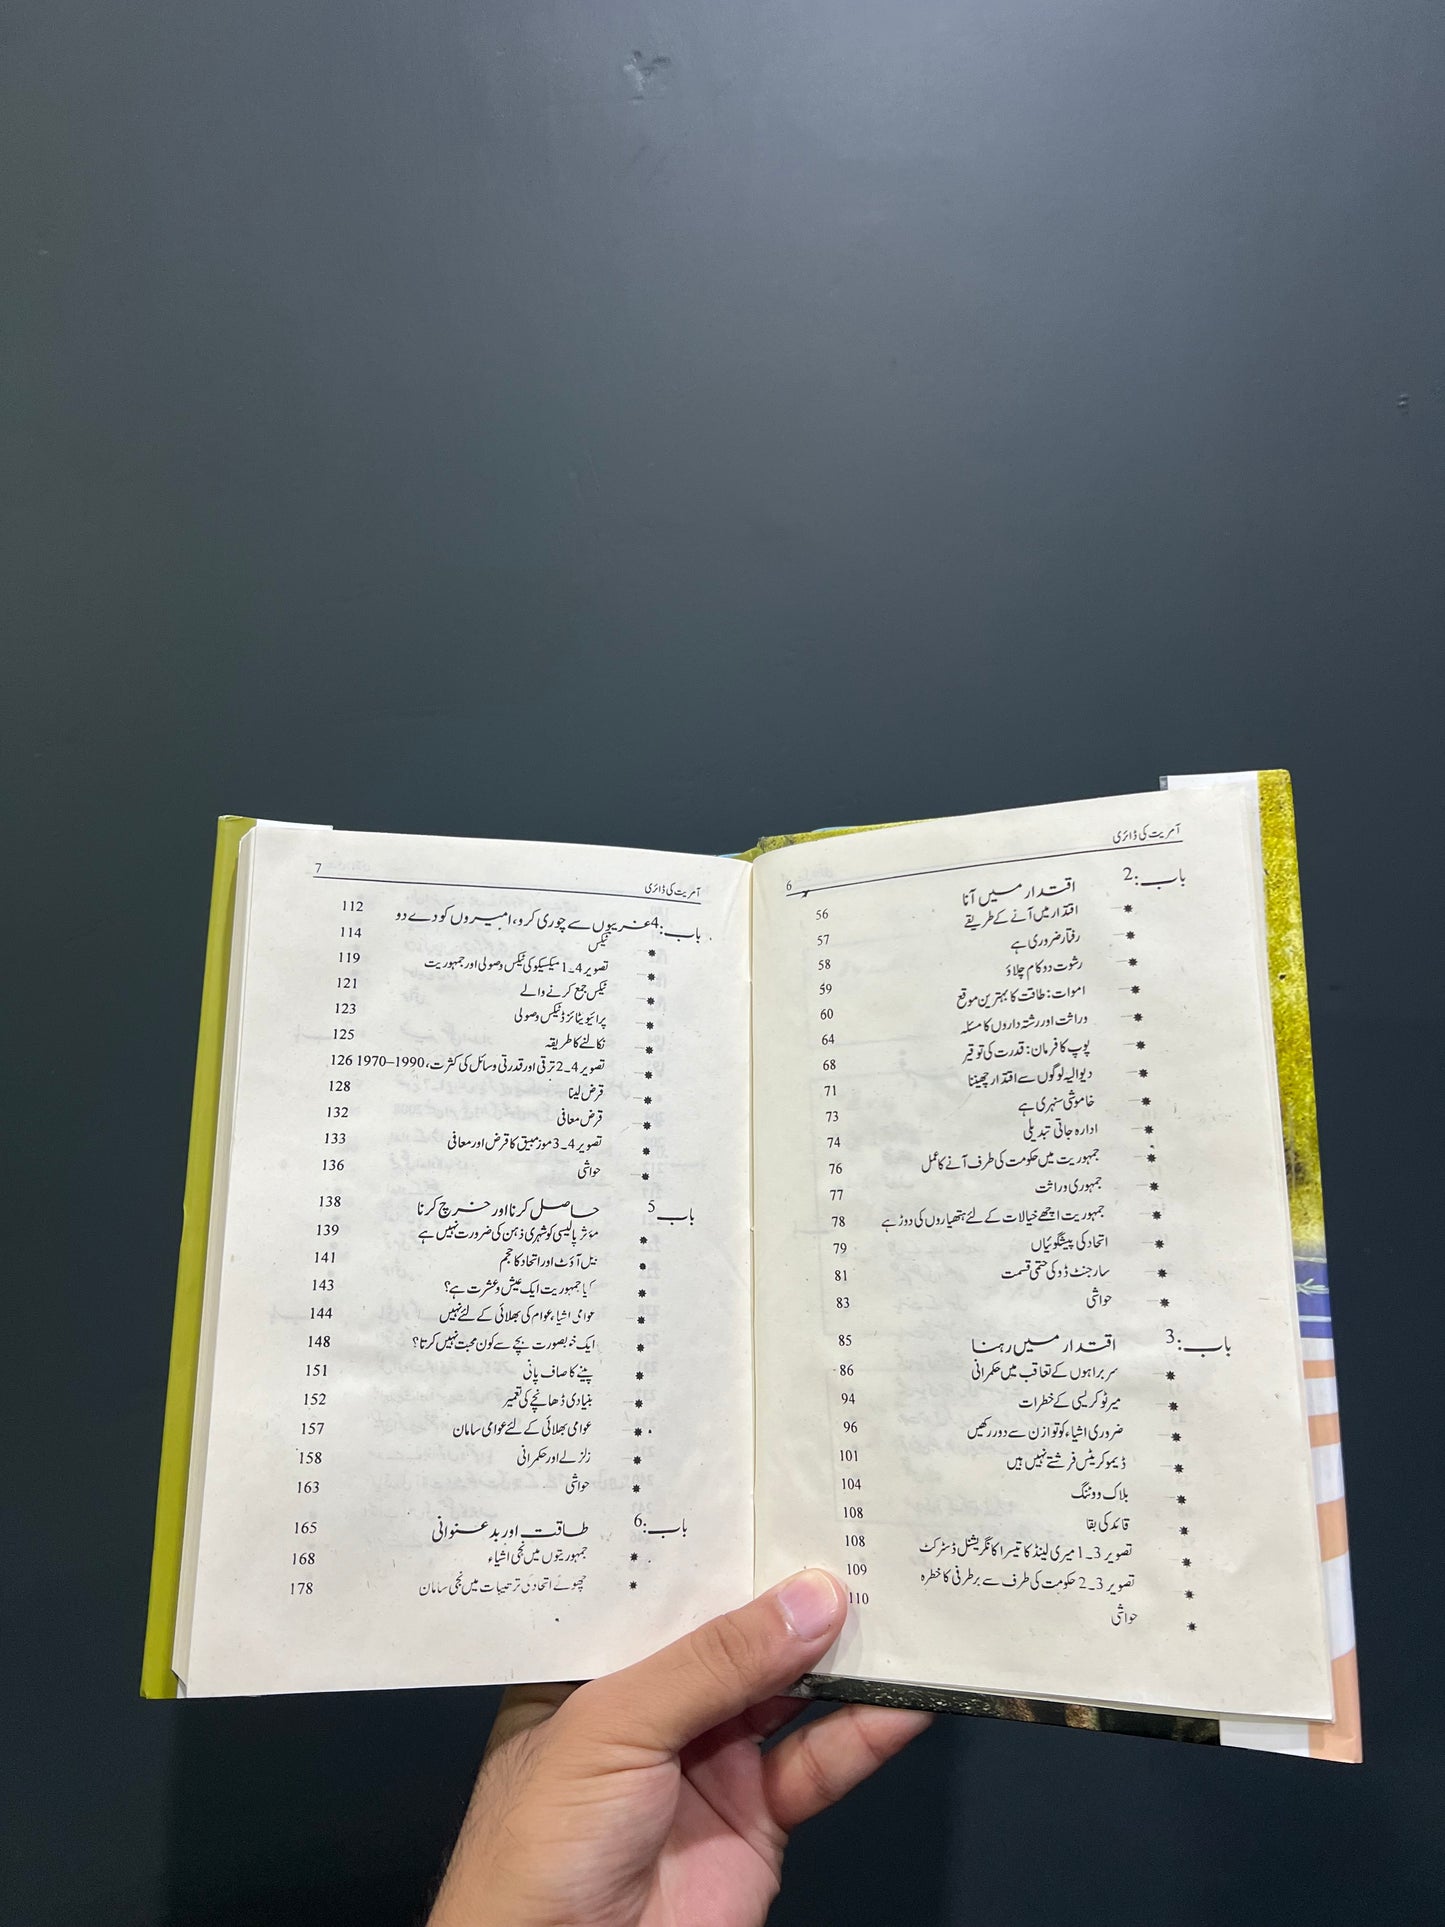 آمریت کی ڈائری
6
باب:2 اقتدار میں آنا 56
اقتدار میں آنے کے طریقے 57
رفتار ضروری ہے 58
رشوت دو کام چلاؤ 59
اموات: طاقت کا بہترین موقع 60
وراثت اور رشتہ داروں کا مسئلہ 64
پوپ کا فرمان: قدرت کی توقیر 68
دیوالیہ لوگوں سے اقتدار چھیننا 71
خاموشی سنہری ہے 73
ادارہ جاتی تبدیلی 74
جمہوریت میں حکومت کی طرف آنے کا عمل 76
جمہوری وراثت 77
جمہوریت اچھے خیالات کے لئے ہتھیاروں کی دوڑ ہے 78
اتحاد کی پیشگوئیاں 79
سارجنٹ ڈو کی حتمی قسمت 81
حواشی 83
باب:3 اقتدار میں رہنا 85
سربراہوں کے تعاقب میں حکمرانی 86
میرٹوکریسی کے خطرات 94
ضروری اشیاء کو توازن سے دور رکھیں 96
ڈیموکریٹس فرشتے نہیں ہیں 101
بلاک ووٹنگ 104
قائد کی بقا 108
تصویر 3۔1 میری لینڈ کا تیسرا کانگریشنل ڈسٹرکٹ 108
تصویر 3۔2 حکومت کی طرف سے برطرفی کا خطرہ 109
حواشی 110
آمریت کی ڈائری
7
باب:4 غریبوں سے چوری کرو، امیروں کو دے دو 112
ٹیکس 114
تصویر 4۔1 میکسیکو کی ٹیکس وصولی اور جمہوریت 119
ٹیکس جمع کرنے والے 121
پرائیویٹائزڈ ٹیکس وصولی 123
نکالنے کا طریقہ 125
تصویر 4۔2 ترقی اور قدرتی وسائل کی کثرت، 1990–1970 126
قرض لینا 128
قرض معافی 132
تصویر 4۔3 موزمبیق کا قرض اور معافی 133
حواشی 136
باب 5 حاصل کرنا اور خرچ کرنا 138
مؤثر پالیسی کو شہری ذہن کی ضرورت نہیں ہے 139
بیل آؤٹ اور اتحاد کا حجم 141
کیا جمہوریت ایک عیش و عشرت ہے؟ 143
عوامی اشیاء عوام کی بھلائی کے لئے نہیں 144
ایک خوبصورت بچے سے کون محبت نہیں کرتا؟ 148
پینے کا صاف پانی 151
بنیادی ڈھانچے کی تعمیر 152
عوامی بھلائی کے لئے عوامی سامان 157
زلزلے اور حکمرانی 158
حواشی 163
باب:6 طاقت اور بدعنوانی 165
جمہوریتوں میں نجی اشیاء 168
چھوٹے اتحاد کی ترتیبات میں نجی سامان 178